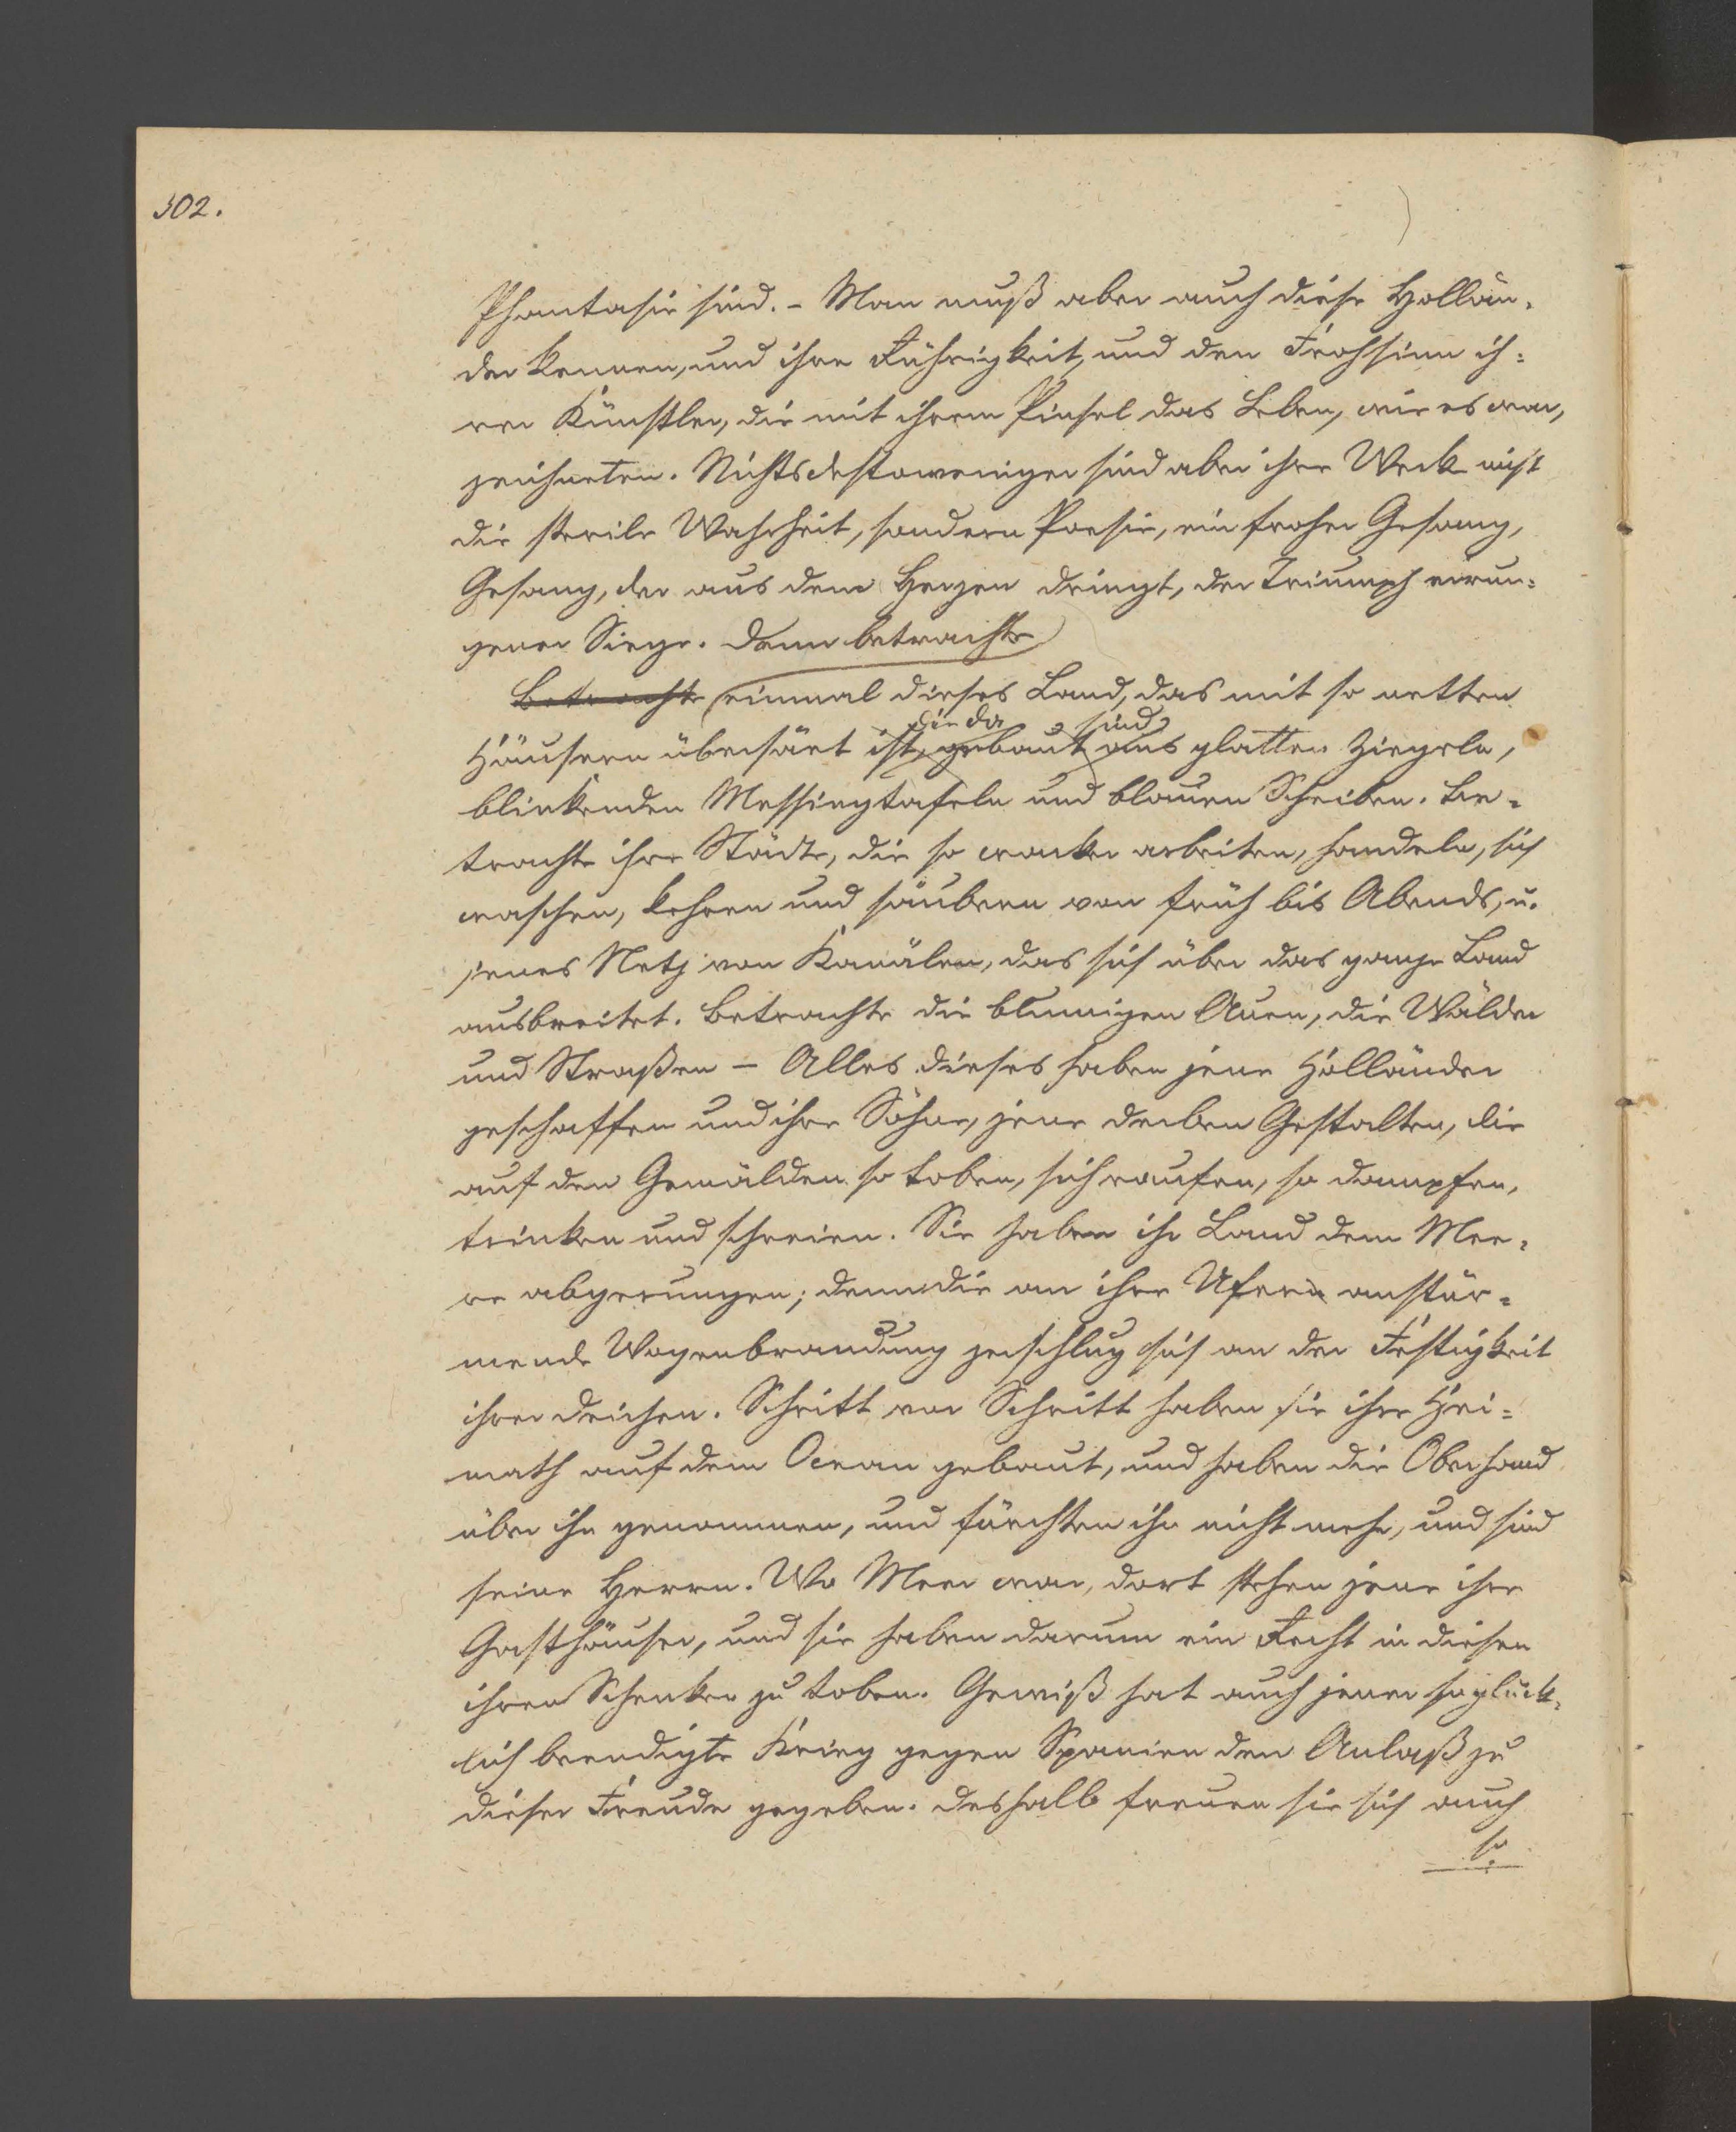 302.
Phantasie sind. – Man muß aber auch diese Hollän-
der kennen, und ihre Rührigkeit, und den Frohsinn ih=
rer Künstler, die mit ihrem Pinsel das Leben, wie es war,
zeichneten. Nichtsdestoweniger sind aber ihre Werk nicht
die sterile Wahrheit, sondern Poesie, ein froher Gesang,
Gesang, der aus dem Herzen dringt, der Triumph errun=
gener Siege. Denn betrachte
Betrachte einmal dieses Land, das mit so netten
die da sind
Häusern übersäet ist, gebaut aus glatten Ziegeln,
blinkenden Messingtafeln und blauen Scheiben. Be-
trachte ihre Städte, die so wacker arbeiten, handeln, sich
waschen, kehren und säubern von früh bis Abends, u.
jenes Netz von Kanälen, das sich über das ganze Land
ausbreitet. Betrachte die blumigen Auen, die Wälder
und Straßen – Alles dieses haben jene Holländer
geschaffen und ihre Söhne, jene derben Gestalten, die
auf den Gemälden so toben, sich raufen, so dampfen,
trinken und schreien. Sie haben ihr Land dem Mee-
re abgerungen; denn die an ihre Ufern anstür-
mende Wogenbrandung zerschlug sich an der Festigkeit
ihrer Deichen. Schritt vor Schritt haben sie ihre Hei=
math auf dem Ocean gebaut, und haben die Oberhand
über ihn genommen, und fürchten ihn nicht mehr, und sind
seine Herren. Wo Meer war, dort stehen jene ihre
Gasthäuser, und sie haben darum ein Recht in diesen
ihren Schenken zu toben. Gewiß hat auch jener so glück-
lich beendigte Krieg gegen Spanien den Anlaß zu
dieser Freude gegeben. Deshalb freuen sie sich auch
so